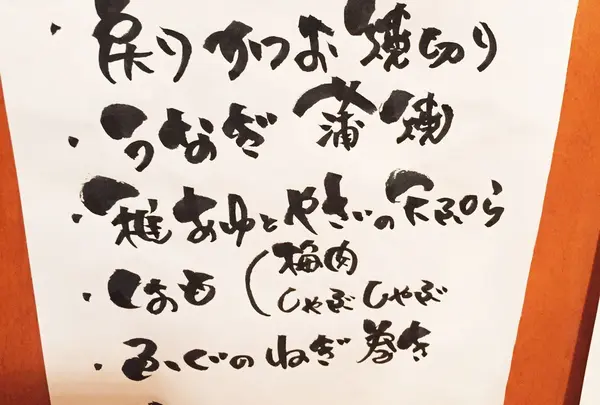 ・戻りかつお焼切り
・うなぎ蒲焼
・稚あゆとやさいの天ぷら
・はも(梅肉
しゃぶしゃぶ
・ふぐのねぎ巻き